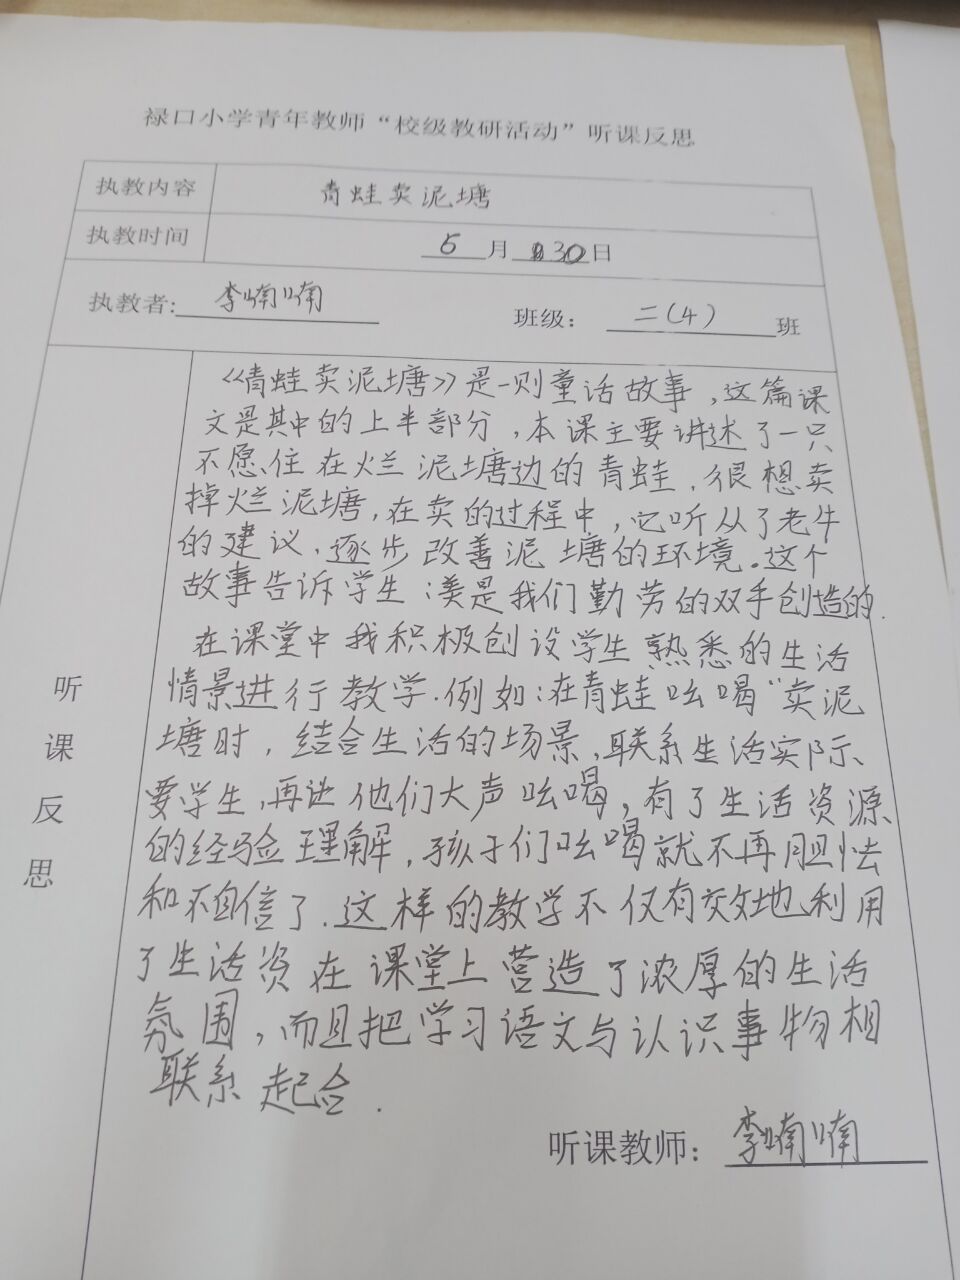 禄口小学青年教师“校级教研活动”听课反思
执教内容 青蛙卖泥塘
执教时间 5月30日
执教者:李喃喃 班级：二(4)班
听课反思
《青蛙卖泥塘》是一则童话故事，这篇课
文是其中的上半部分，本课主要讲述了一只
不愿住在烂泥塘边的青蛙，很想卖
掉烂泥塘，在卖的过程中，它听从了老牛
的建议，逐步改善泥塘的环境。这个
故事告诉学生：美是我们勤劳的双手创造的.
在课堂中我积极创设学生熟悉的生活
情景进行教学.例如：在青蛙吆喝“卖泥
塘时，结合生活的场景，联系生活实际、
要学生，再让他们大声吆喝，有了生活资源
的经验理解，孩子们吆喝就不再胆怯
和不自信了.这样的教学不仅有效地利用
了生活资在课堂上营造了浓厚的生活
氛围，而且把学习语文与认识事物相
联系起合.
听课教师：李喃喃